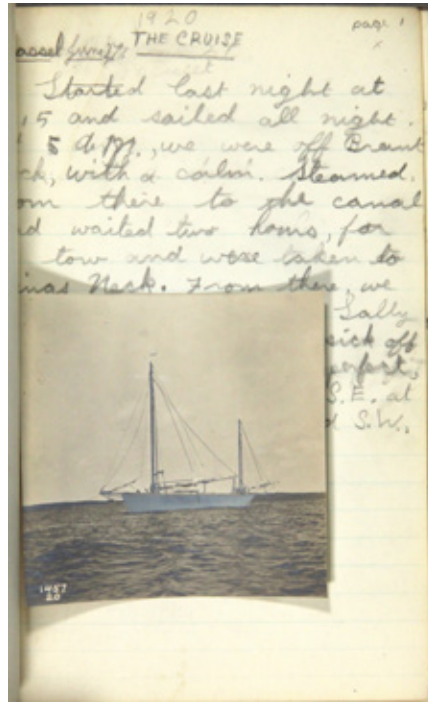 1920
page 1
THE CRUISE
assel June 27
Started last night at
15 and sailed all night.
5 A.M., we were off Brant
ck, with a calm. Steamed.
om there to the canal
d waited two hours, for
tow and were taken to
inas Neck. From there, we
Sally
sick off
S.E. at
d S.W.,
1457
20